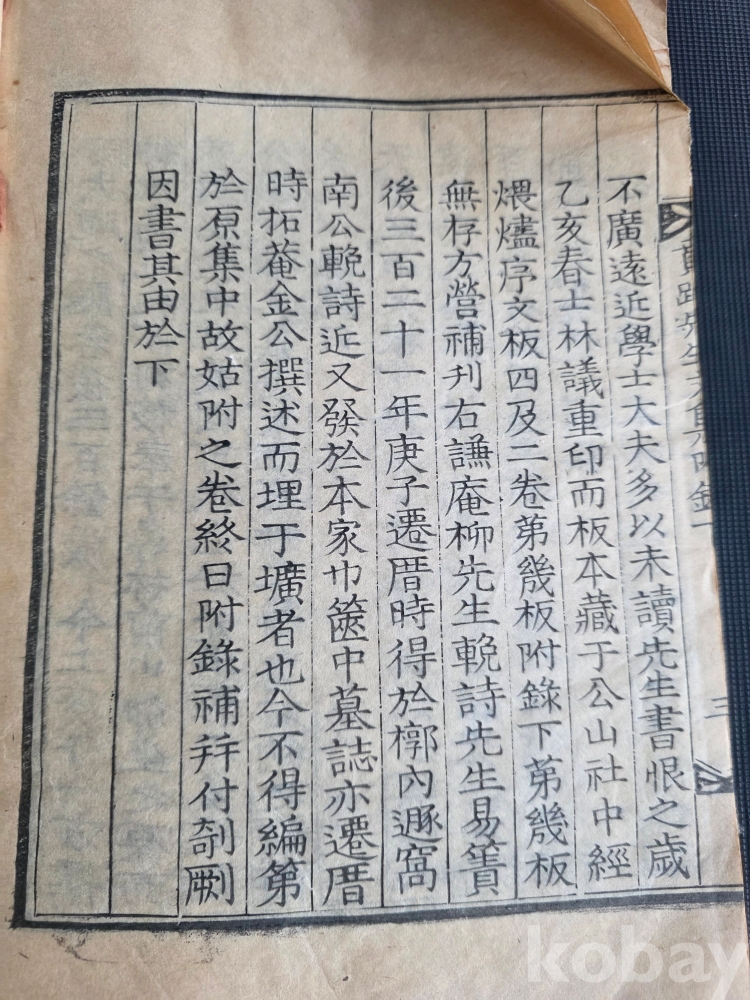 不廣遠近學士大夫多以未讀先生書恨之歲
乙亥春士林議重印而板本藏于公山社中經
煨燼序文板四及二卷第幾板附錄下第幾板
無存方營補刋右謙庵柳先生輓詩先生易簀
後三百二十一年庚子遷厝時得於槨內遯窩
南公輓詩近又發於本家巾篋中墓誌亦遷厝
時拓菴金公撰述而埋于壙者也今不得編第
於原集中故姑附之卷終曰附錄補幷付剞劂
因書其由於下
先生文集附錄下
三
kobay